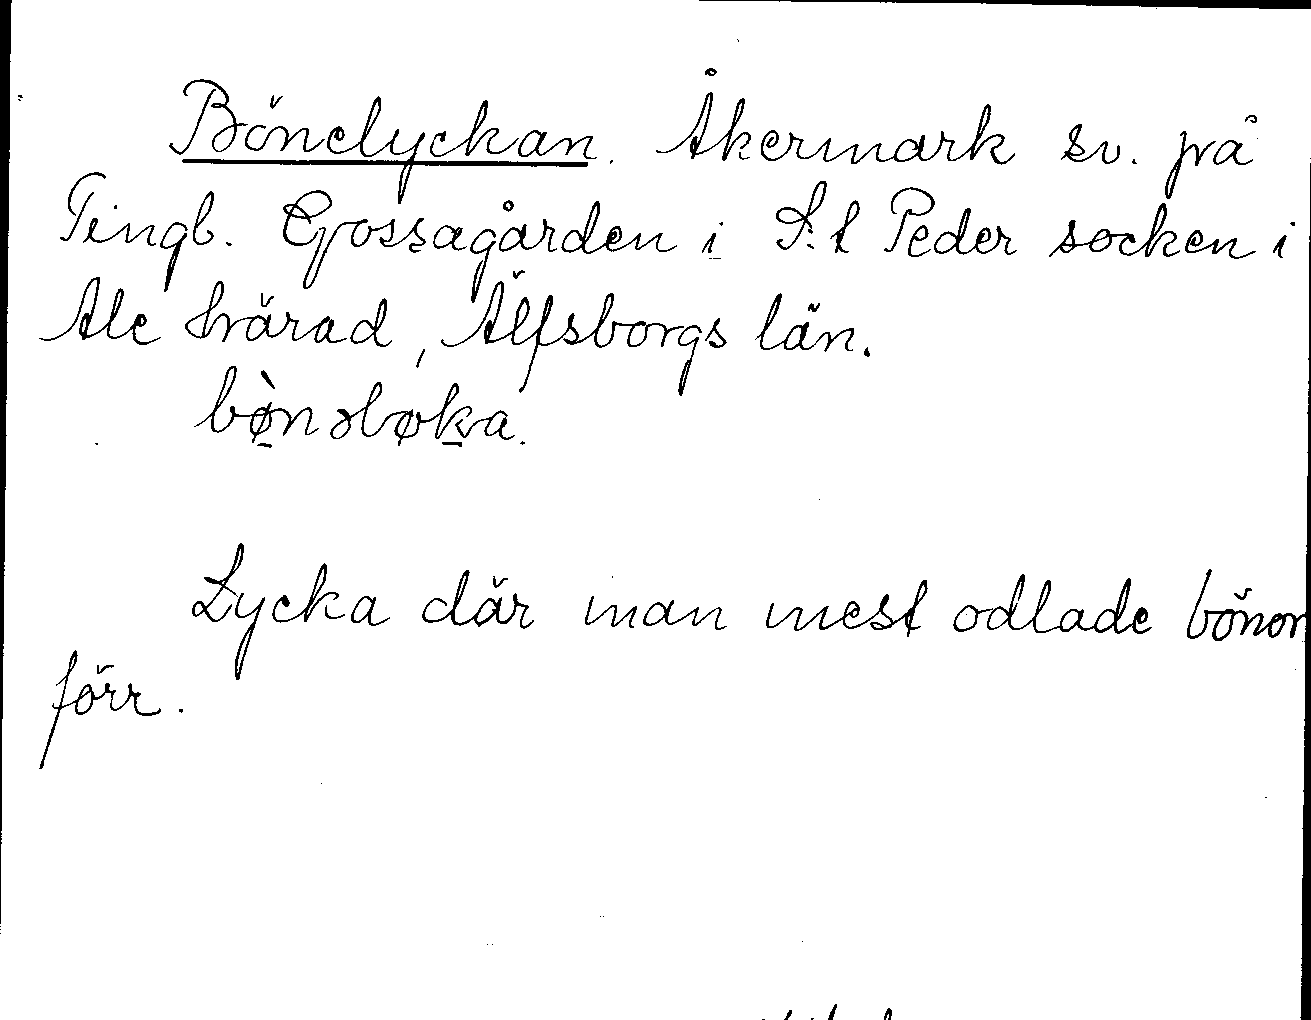 Bönelyckan. Åkermark sv. på
Tingb. Gossagården i S:t Peder socken i
Ale härad, Älfsborgs län.
bø̀nəløka.
Lycka där man mest odlade bönor
förr.